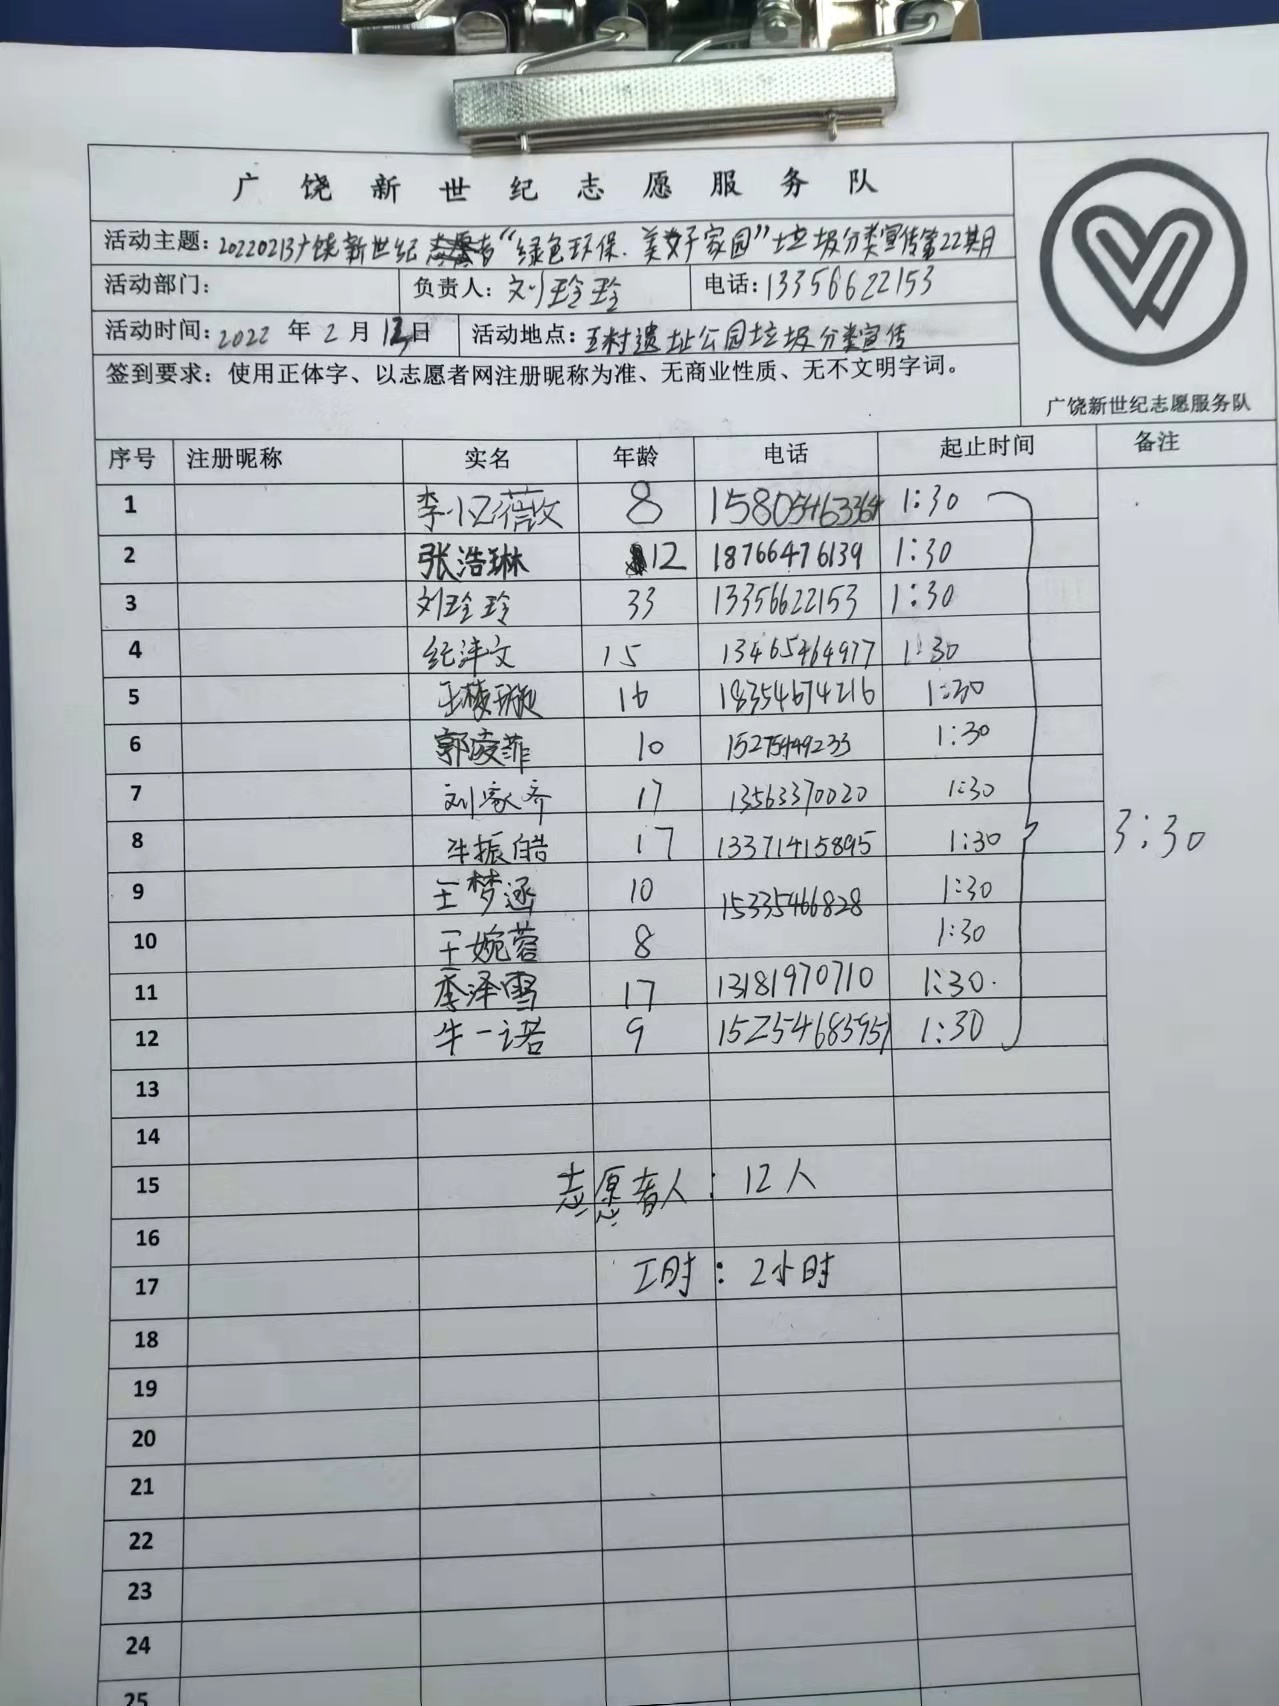 广饶新世纪志愿服务队
活动主题：20220213广饶新世纪志愿者“绿色环保.美好家园”垃圾分类宣传第22期
活动部门： 负责人：刘玲玲 电话：13356622153
活动时间：2022 年 2 月 13日 活动地点：五村遗址公园垃圾分类宣传
签到要求：使用正体字、以志愿者网注册昵称为准、无商业性质、无不文明字词。
广饶新世纪志愿服务队
序号 注册昵称 实名 年龄 电话 起止时间 备注
1 李亿薇 8 15805463364 1:30
2 张浩琳 12 18766476139 1:30
3 刘玲玲 33 13356622153 1:30
4 纪沣文 15 13465464977 1:30
5 王棱璇 16 18354674216 1:30
6 郭凌菲 10 15275449233 1:30
7 刘家齐 17 13563370020 1:30
8 牛振皓 17 13371415895 1:30 3:30
9 王梦涵 10 15335466828 1:30
10 王婉蓉 8 1:30
11 李泽雪 17 13181970710 1:30.
12 牛一诺 9 15254683951 1:30
13
14
15 志愿者人：12人
16
17 工时：2小时
18
19
20
21
22
23
24
25